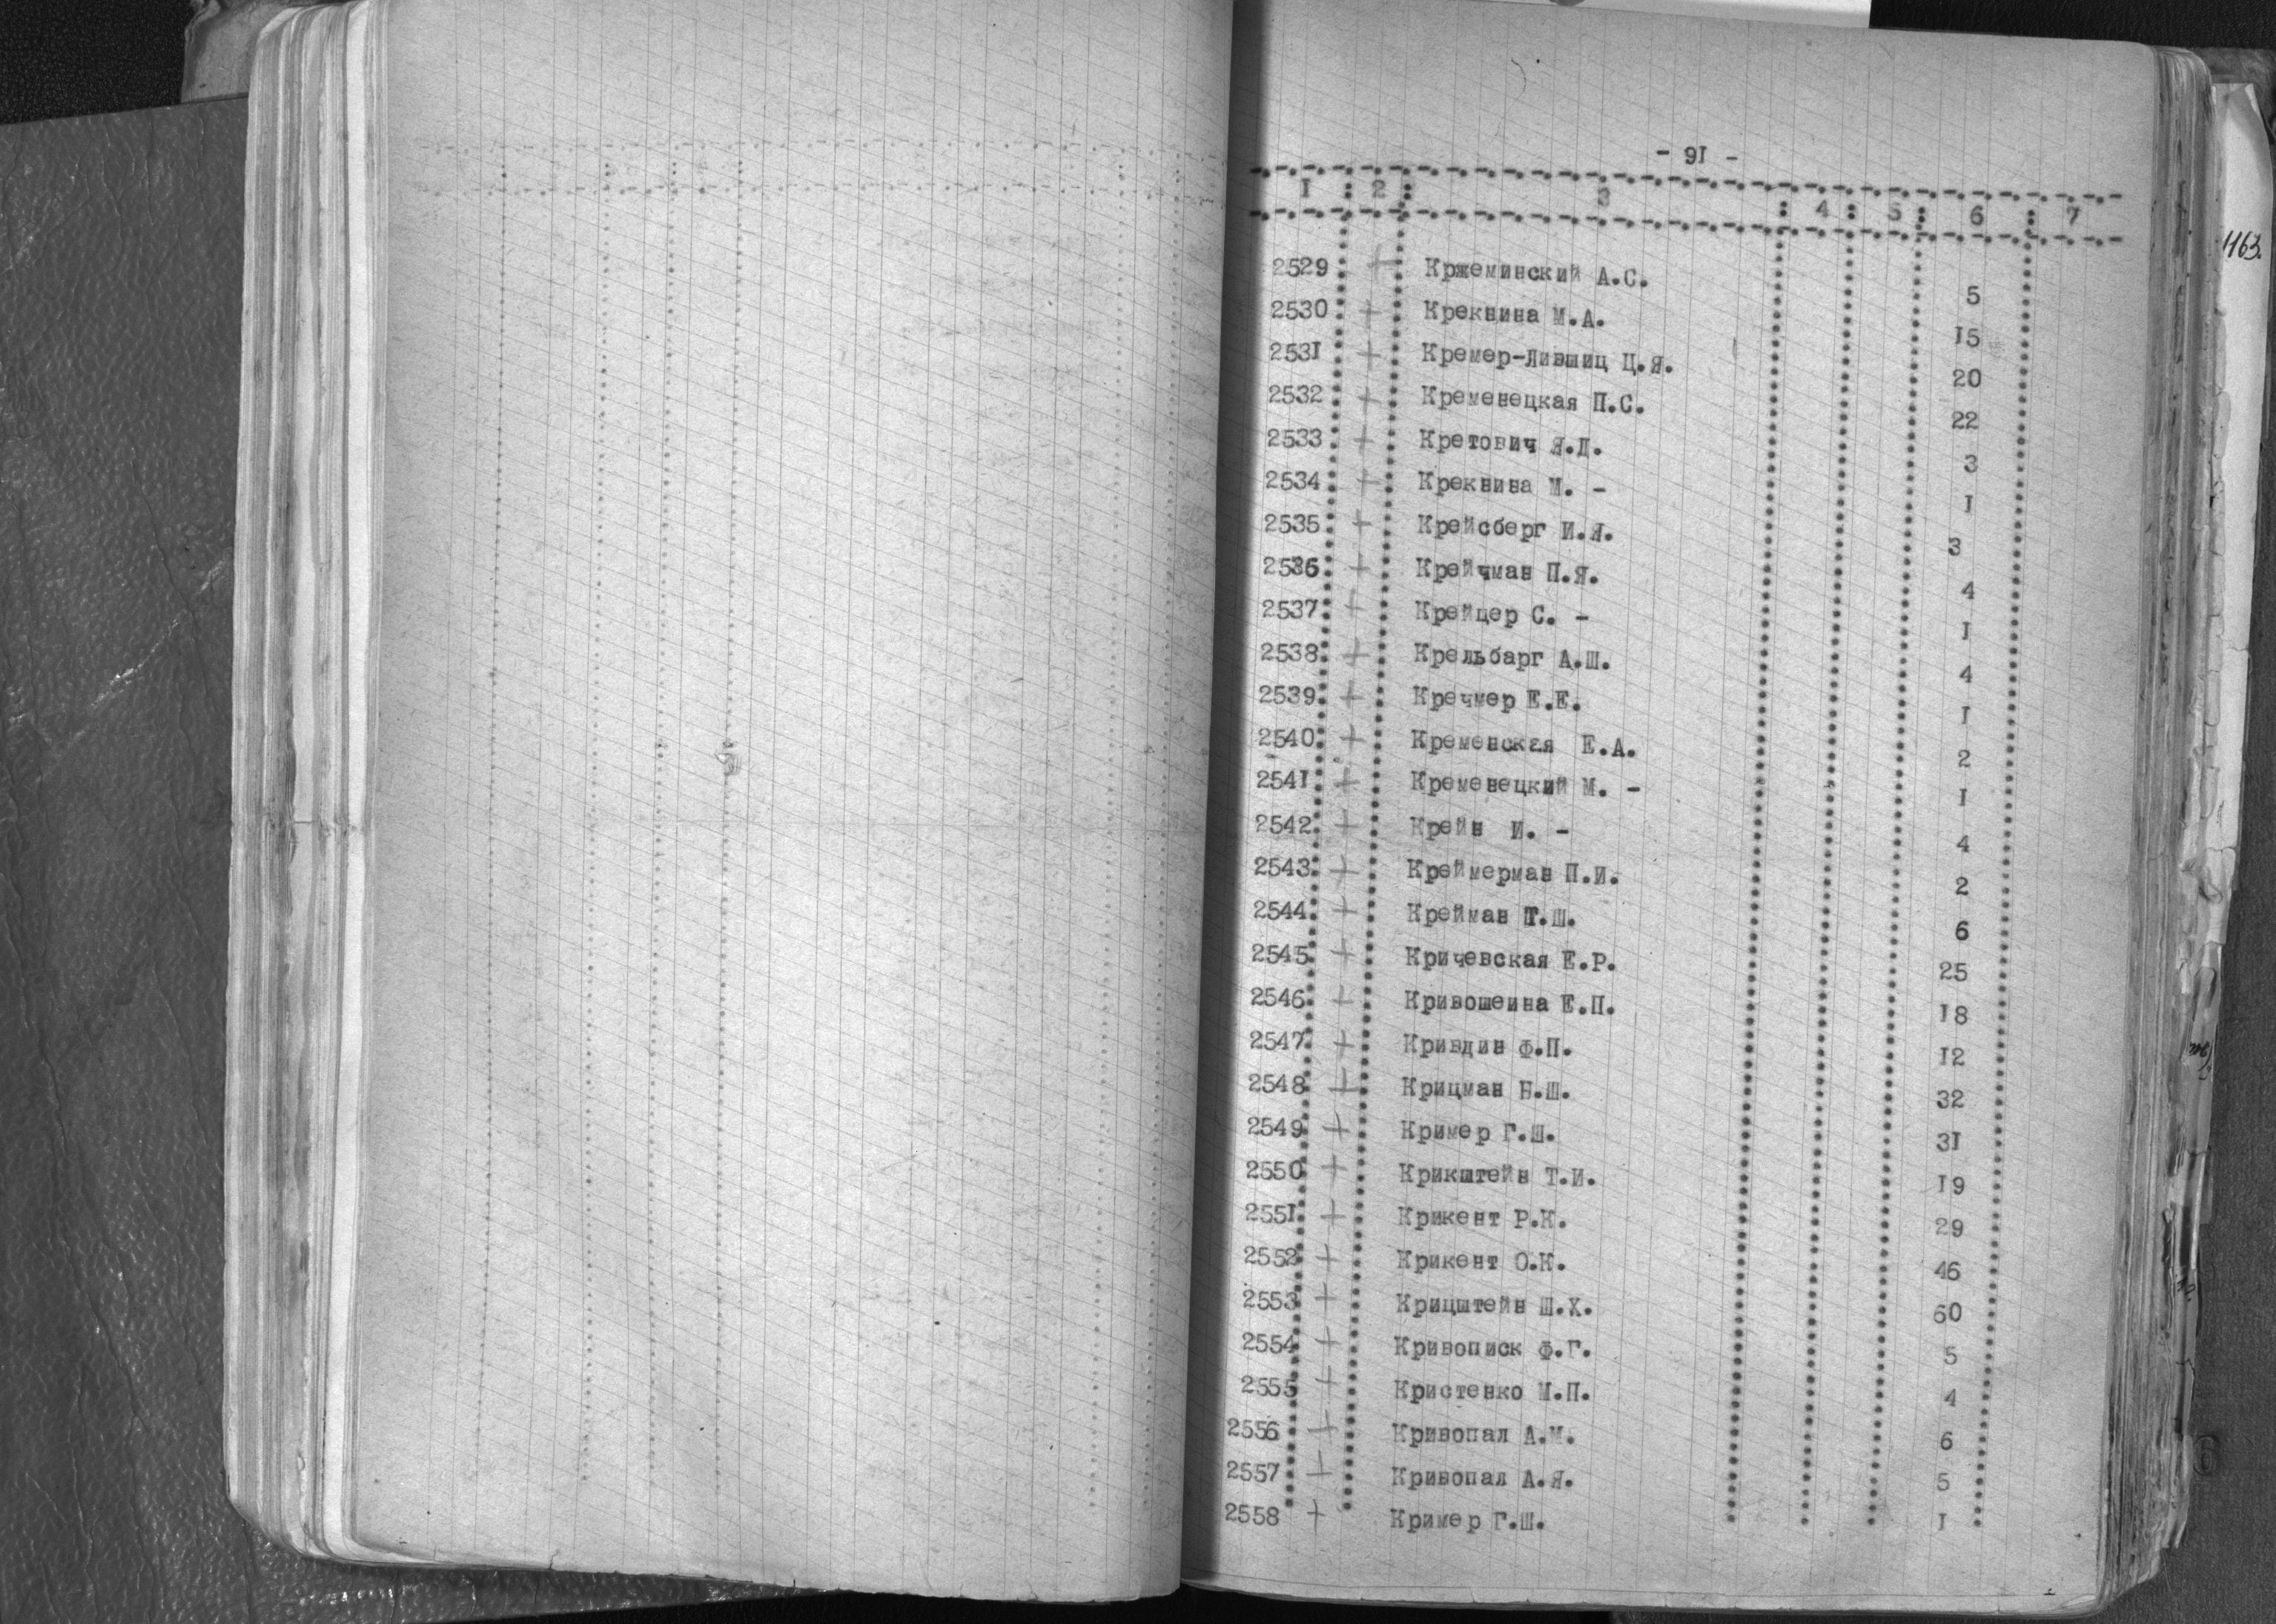 - 91 -
1 : 2 : 3 : 4 : 5 : 6 : 7
2529 + Кржеминский А.С. 5
2530 + Крекнина М.А. 15
2531 + Кремер-Лившиц Ц.Я. 20
2532 + Кременецкая П.С. 22
2533 + Кретович Я.Д. 3
2534 + Крекнина М. - 1
2535 + Крейсберг И.Я. 3
2536 + Крейчман П.Я. 4
2537 + Крейцер С. - 1
2538 + Крельбарг А.Ш. 4
2539 + Кречмер Е.Е. 1
2540 + Кременская Е.А. 2
2541 + Кременецкий М. - 1
2542 + Крейн И. - 4
2543 + Креймерман П.И. 2
2544 + Крейман Т.Ш. 6
2545 + Кричевская Е.Р. 25
2546 + Кривошеина Е.П. 18
2547 + Кривдин Ф.П. 12
2548 + Крицман Н.Ш. 32
2549 + Кример Г.Ш. 31
2550 + Крикштейн Т.И. 19
2551 + Крикент Р.К. 29
2552 + Крикент О.К. 46
2553 + Крицштейн Ш.Х. 60
2554 + Кривописк Ф.Г. 5
2555 + Кристенко М.П. 4
2556 + Кривопал А.М. 6
2557 + Кривопал А.Я. 5
2558 + Кример Г.Ш. 1
1163.